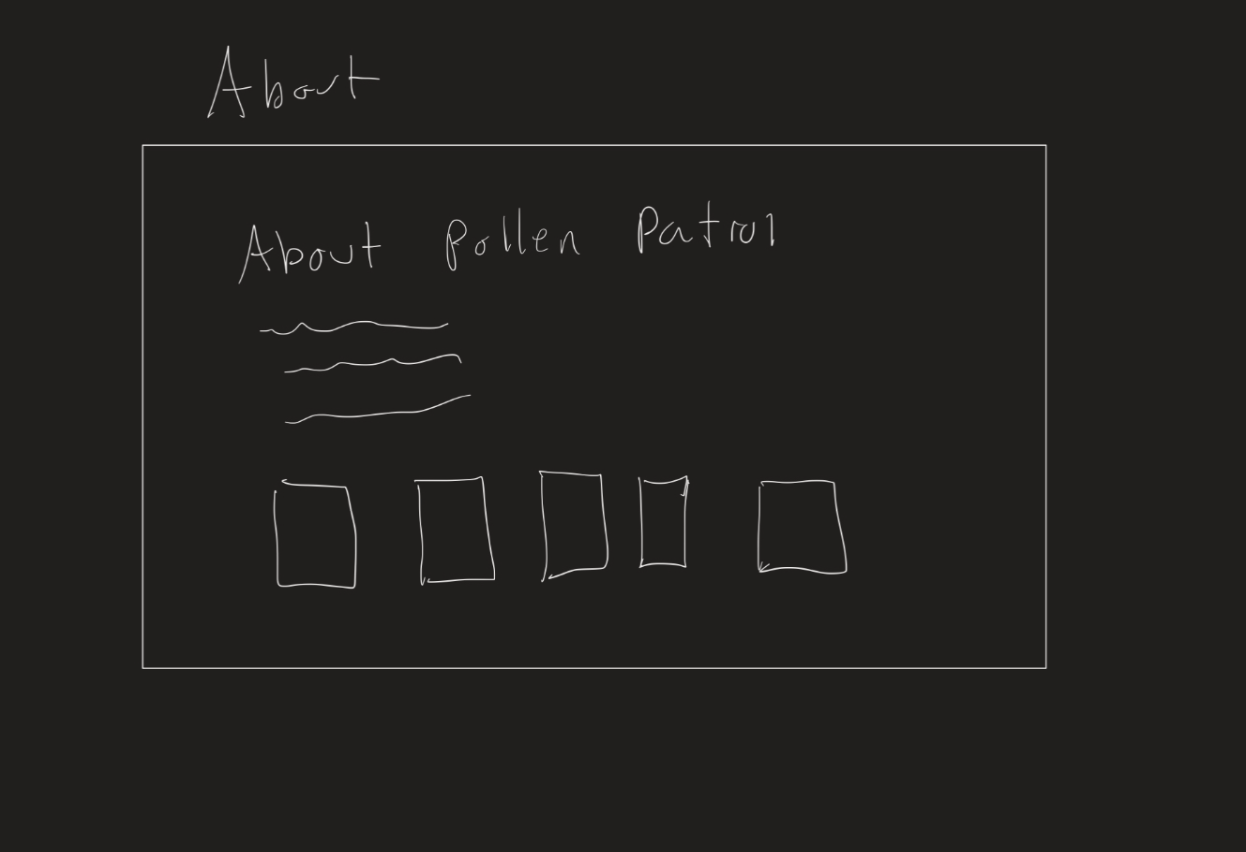 About
About Pollen Patrol